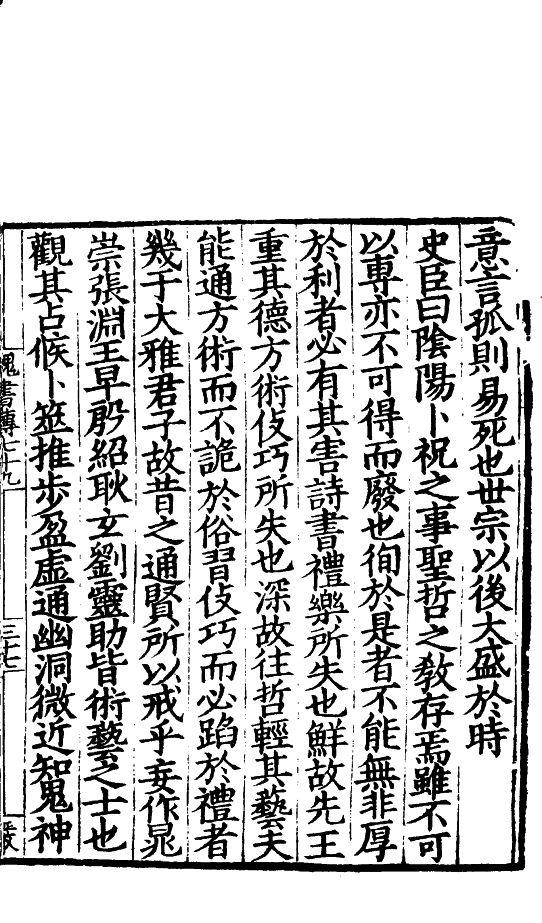 意言孤則易死也世宗以後大盛於時
史臣曰陰陽卜祝之事聖哲之敎存焉雖不可
以專亦不可得而廢也徇於是者不能無非厚
於利者必有其害詩書禮樂所失也鮮故先王
重其德方術伎巧所失也深故往哲輕其藝夫
能通方術而不詭於俗習伎巧而必蹈於禮者
幾于大雅君子故昔之通賢所以戒乎妄作晁
崇張淵王早殷紹耿玄劉靈助皆術藝之士也
觀其占候卜筮推步盈虛通幽洞微近知鬼神
魏書傳七十九
三七二